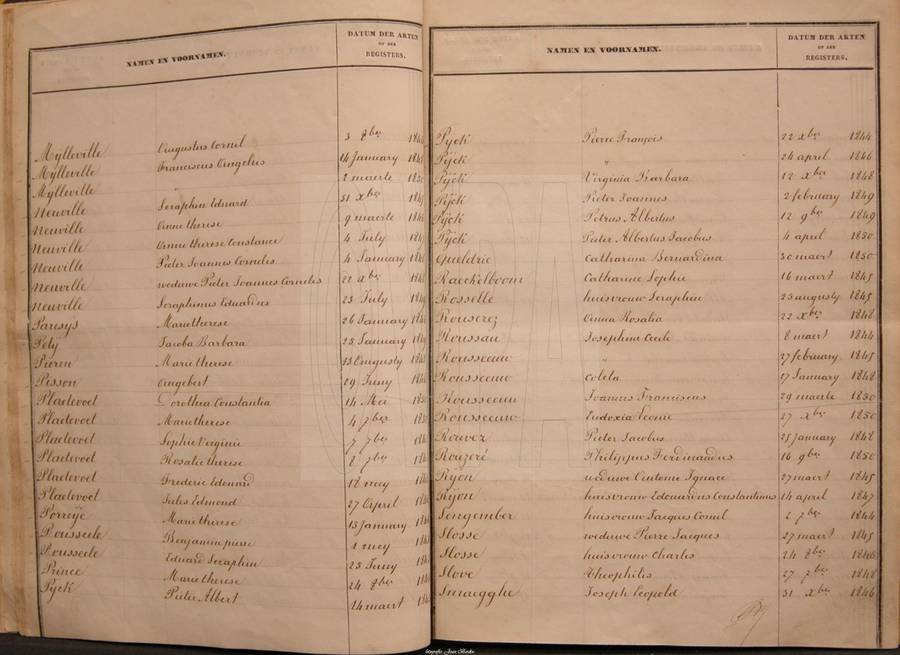 NAMEN EN VOORNAMEN. DATUM DER AKTEN OF DER REGISTERS.
Mylleville Augustus Cornil 3 7ber
Mylleville Franciscus Angelus 14 January
Mylleville " 2 maerte
Neuville Seraphin Eduard 31 xber
Neuville Anne therese 9 maerte
Neuville Anne therese Constance 4 July
Neuville Pieter Joannes Cornelis 4 January
Neuville weduwe Pieter Joannes Cornelis 22 xber
Neuville Seraphinus Eduardus 23 July
Parisys Marie therese 26 January
Poly Jacoba Barbara 25 January
Pieren Marie therese 13 Augusty
Pisson Angebert 29 Juny
Plaetevoet Dorothea Constantia 14 Mei
Plaetevoet Marie therese 4 7ber
Plaetevoet Sophie Virginie 7 7ber
Plaetevoet Rosalie therese 2 7ber
Plaetevoet Frederic Edouard 18 mey
Plaetevoet Jules Edmond 27 April
Porreije Marie therese 15 January
Pousseele Benjamin pierre 1 mey
Pousseele Eduard Seraphin 23 Juny
Prince Marie therese 24 8ber
Pijck Pieter Albert 14 maert
NAMEN EN VOORNAMEN. DATUM DER AKTEN OF DER REGISTERS.
Pijck Pierre François 22 xber 1844
Pijck " 24 april 1846
Pijck Virginia Barbara 12 xber 1848
Pijck Pieter Joannes 2 february 1849
Pijck Petrus Albertus 12 9ber 1849
Pijck Pieter Albertus Jacobus 4 april 1850
Queldrie Catharina Bernardina 30 maert 1850
Raeckelboom Catharine Sophie 16 maert 1845
Rosselle huisvrouw Seraphin 23 augusty 1845
Rouserez Anna Rosalia 22 xber 1848
Roussau Josephine Cecile 8 maert 1844
Rousseeuw " 27 february 1845
Rousseeuw Coleta 27 January 1848
Rousseeuw Joannes Franciscus 29 maerte 1850
Rousseeuw Eudoxia Leonie 27 xber 1850
Rouvez Pieter Jacobus 25 January 1848
Rouzeré Philippus Ferdinandus 16 9ber 1850
Rijon weduwe Antoine Ignace 27 maert 1845
Rijon huisvrouw Edouardus Constantinus 14 april 1847
Sengember huisvrouw Jacques Cornil 2 7ber 1844
Slosse weduwe Pierre Jacques 27 maert 1845
Slosse huisvrouw Charles 24 8ber 1846
Slove Theophilis 27 7ber 1848
Smaegghe Joseph Leopold 31 xber 1846